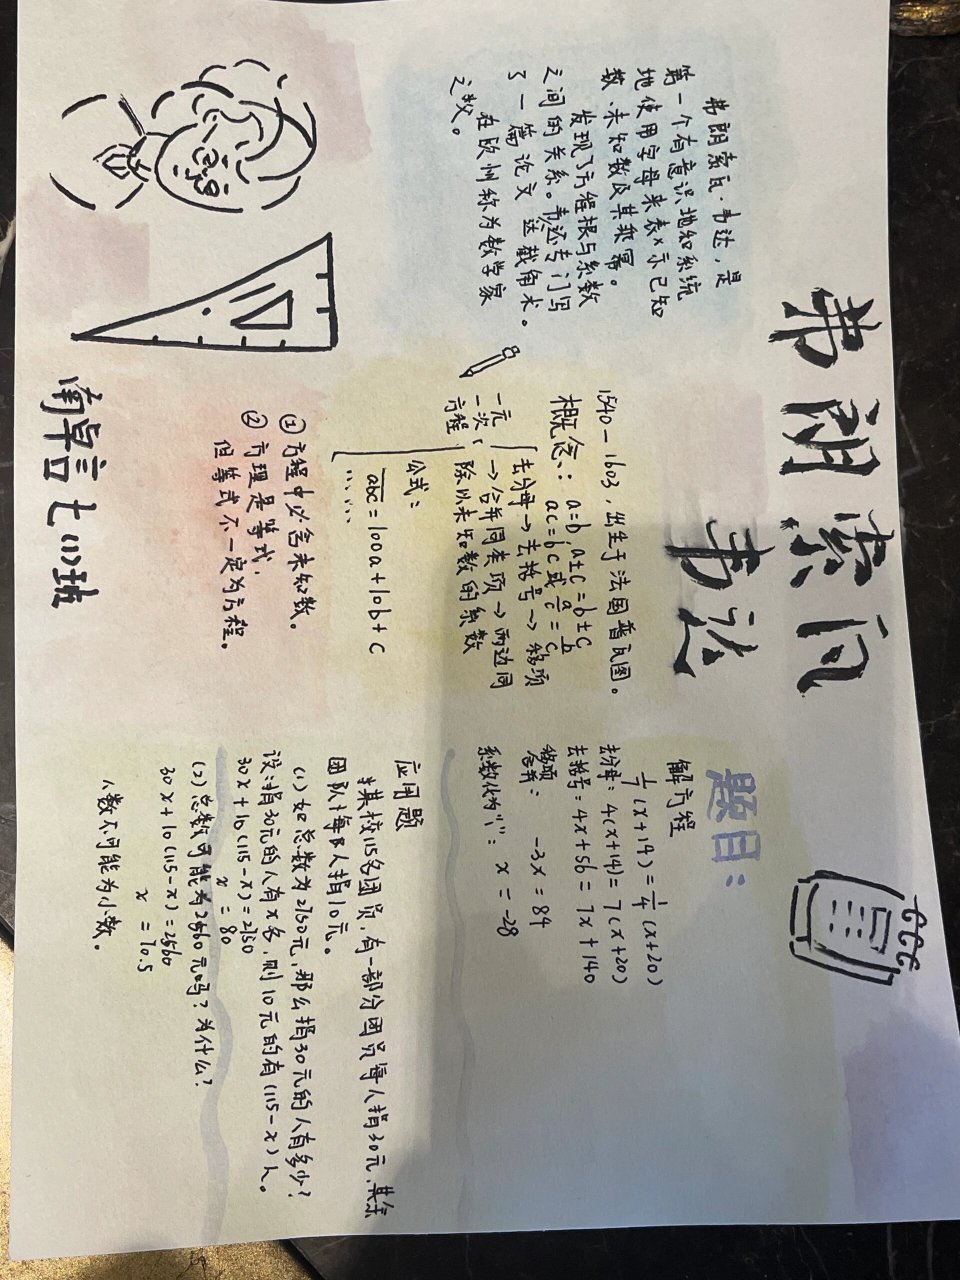 弗朗索瓦
韦达
弗朗索瓦·韦达,是
第一个有意识地和系统
地使用字母来表x示已知
数、未知数及其乘幂。
发现了方程根与系数
之间的关系。韦达专门写
了一篇论文 达截角术。
在欧州称为数学家
之父。
1540-1603,出生于法国普瓦图。
概念: a=b,a±c=b±c
ac=bc或a/c=b/c
一元一次方程:
去分母→去括号→移项
→合并同类项→两边同
除以未知数的系数
公式:
abc=100a+10b+c
……
① 方程中必含未知数。
② 方理是等式,
但等式不一定为方程。
南卓言 七(1)班
题目:
解方程
1/7(x+14)=1/4(x+20)
去分母: 4(x+14)=7(x+20)
去括号: 4x+56=7x+140
移项
合并: -3x=84
系数化为"1": x=-28
应用题
某校115名团员,有一部分团员每人捐30元,其余
团队每人捐10元。
(1)如总数为2750元,那么捐30元的人有多少?
设:捐30元的人有x名,则10元的有(115-x)人。
30x+10(115-x)=2750
x=80
(2)总数可能为2560元吗?为什么?
30x+10(115-x)=2560
x=70.5
人数不可能为小数。